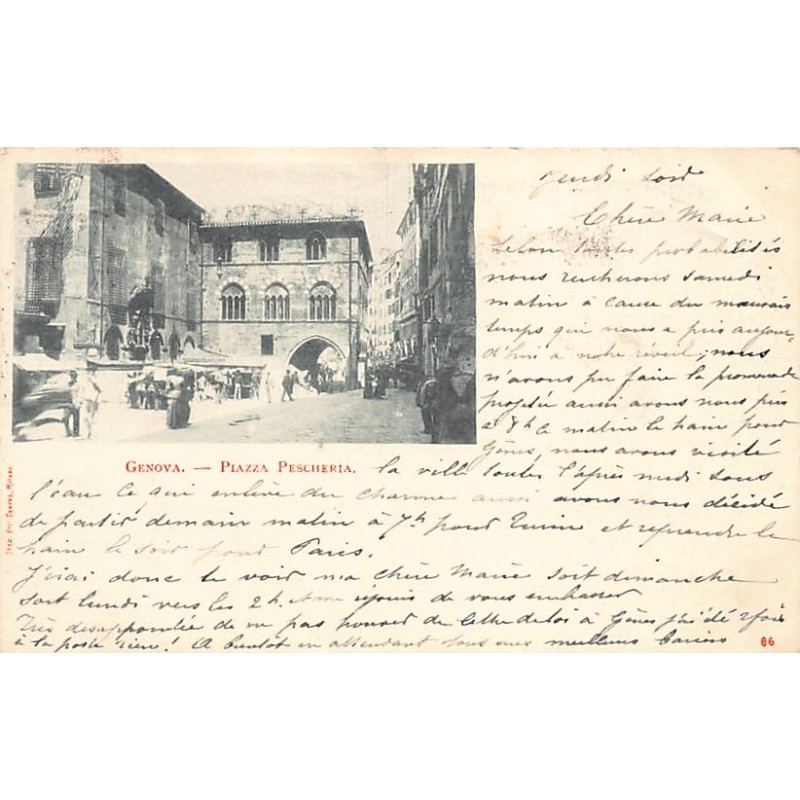 jeudi soir
Chère Marie
Selon toutes probabilités
nous rentrerons samedi
matin à cause du mauvais
temps qui nous a pris aujour-
d'hui à notre réveil, nous
n'avons pu faire la promenade
projetée aussi avons nous pris
à 8h ce matin le train pour
Gênes, nous avons visité
GENOVA. — PIAZZA PESCHERIA.
la ville toute l'après midi sous
l'eau ce qui enlève du charme aussi avons nous décidé
de partir demain matin à 7h pour Turin et reprendre le
train le soir pour Paris.
J'irai donc te voir ma chère Marie soit dimanche
soit lundi vers les 2h, et me réjouis de vous embrasser
Très désappointée de ne pas trouver de lettre de toi à Gênes j'ai été 2 fois
à la poste rien! A bientôt en attendant tous mes meilleurs baisers
86